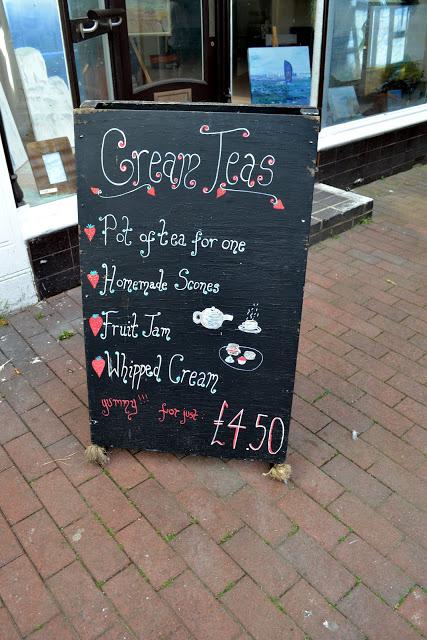 Cream Teas
Pot of tea for one
Homemade Scones
Fruit Jam
Whipped Cream
yummy!!! for just: £4.50